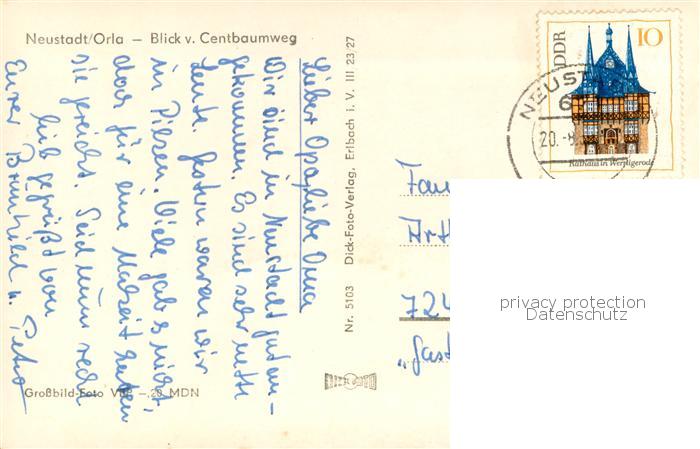 Neustadt/Orla — Blick v. Centbaumweg
Lieber Opa, liebe Oma
Wir sind in Neustadt gut an-
gekommen. Es sind sehr nette
Leute. Gestern waren wir
in Pilsen. Viele gab es nicht,
das für eine Malzeit hätten
sie gereicht. Seid nun recht
lieb gegrüßt von
Eurer Brunhild u. Petra
Großbild-Foto VbP —.20 MDN
Nr. 5103 Dick-Foto-Verlag, Erlbach i. V. III 23/27
DDR
10
Rathaus in Wernigerode
NEUST
20. -8.
Fam
Arth
724
„Gast
privacy protection
Datenschutz